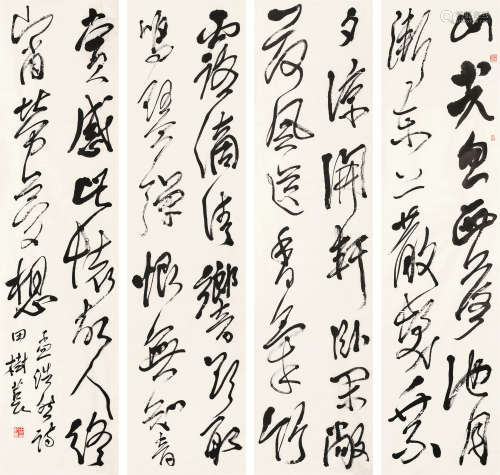 山光忽西落池月
漸東上散髮乘
夕涼開軒卧閑敞
荷風送香氣竹
露滴清響欲取
鳴琴彈恨無知音
賞感此懷故人終
宵勞夢想
孟浩然詩
田樹萇